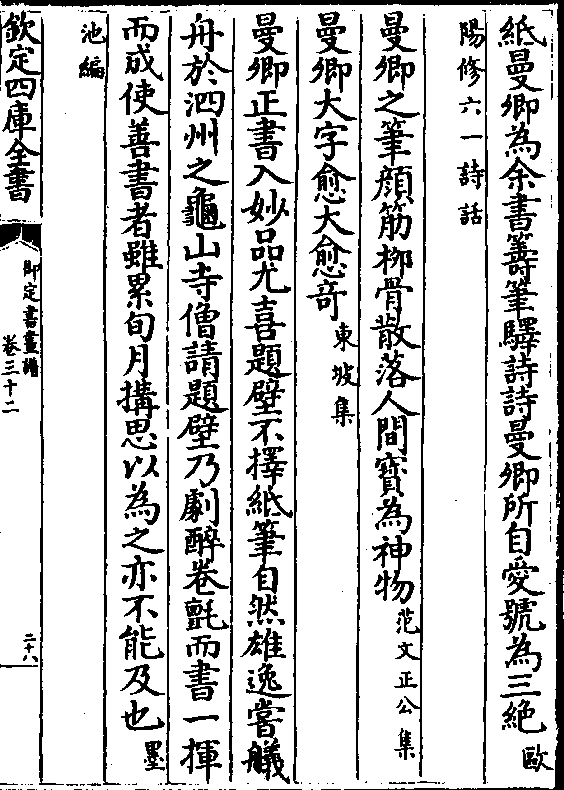 紙曼卿為余書籌筆驛詩詩曼卿所自愛號為三絶歐
陽修六一詩話
曼卿之筆顔筋柳骨散落人間寳為神物范文正公集
曼卿大字愈大愈竒東坡集
曼卿正書入妙品尤喜題壁不擇紙筆自然雄逸嘗艤
舟於泗州之龜山寺僧請題壁乃劇醉卷氈而書一揮
而成使善書者雖累旬月搆思以為之亦不能及也墨
池編
欽定四庫全書
御定書畫譜
卷三十二
二十八